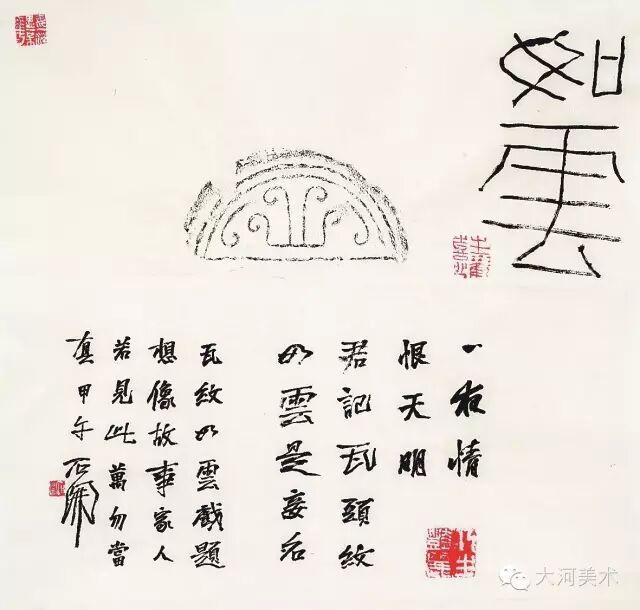 如雲
一夜情
恨天明
君記瓦頭紋
如雲是妾名
瓦紋如雲戲題
想像故事家人
若見此萬勿當
真甲午石開
大河美术